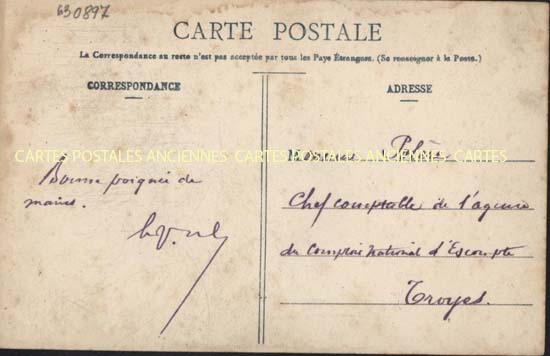 630897
CARTE POSTALE
La Correspondance au recto n'est pas acceptée par tous les Pays Étrangers. (Se renseigner à la Poste.)
CORRESPONDANCE
Bonne poignée de
mains.
ADRESSE
Monsieur
Chef comptable de l'agence
du Comptoir National d'Escompte
Troyes.
CARTES POSTALES ANCIENNES CARTES POSTALES ANCIENNES CARTES